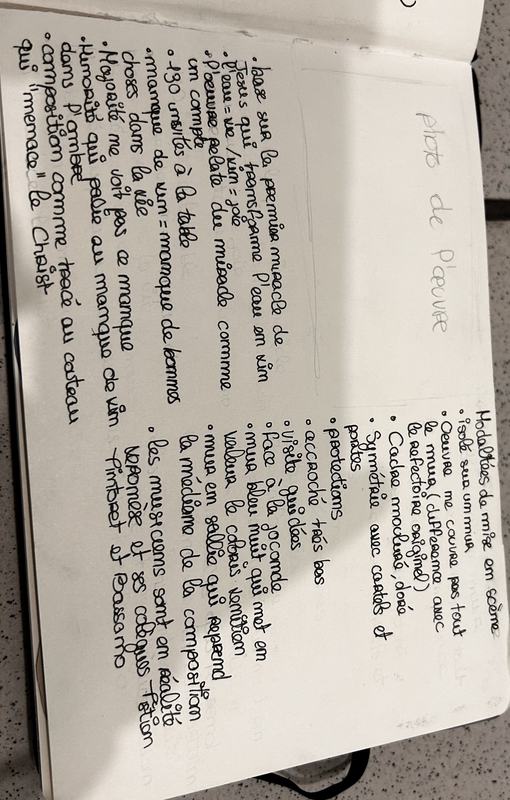 photo de l'œuvre
• basé sur le premier miracle de
Jésus qui transforme l'eau en vin
• l'eau = vie / vin = joie
• l'œuvre relate du miracle comme
un compte
• 130 invités à la table
• manque de vin = manque de bonnes
choses dans la vie
• Majorité ne voit pas ce manque
• Minorité qui palie au manque de vin
dans l'ombre
• composition comme tracé au couteau
qui "menace" le Christ
Modaltées de mise en scène
• isolé sur un mur
• Oeuvre ne couvre pas tout
le mur (différence avec
le réfectoire originel)
• Cadre mouluré, doré
• Symétrie avec cartels et
portes
• protections
• accroché très bas
• visite guidées
• Face à la Joconde
• mur bleu nuit qui met en
valeur le coloris vénitien
• mur en saillie qui reprend
la médiane de la composition
• les musiciens sont en réalité
Véronèse et ses collègues Titien
Tintoret et Bassano